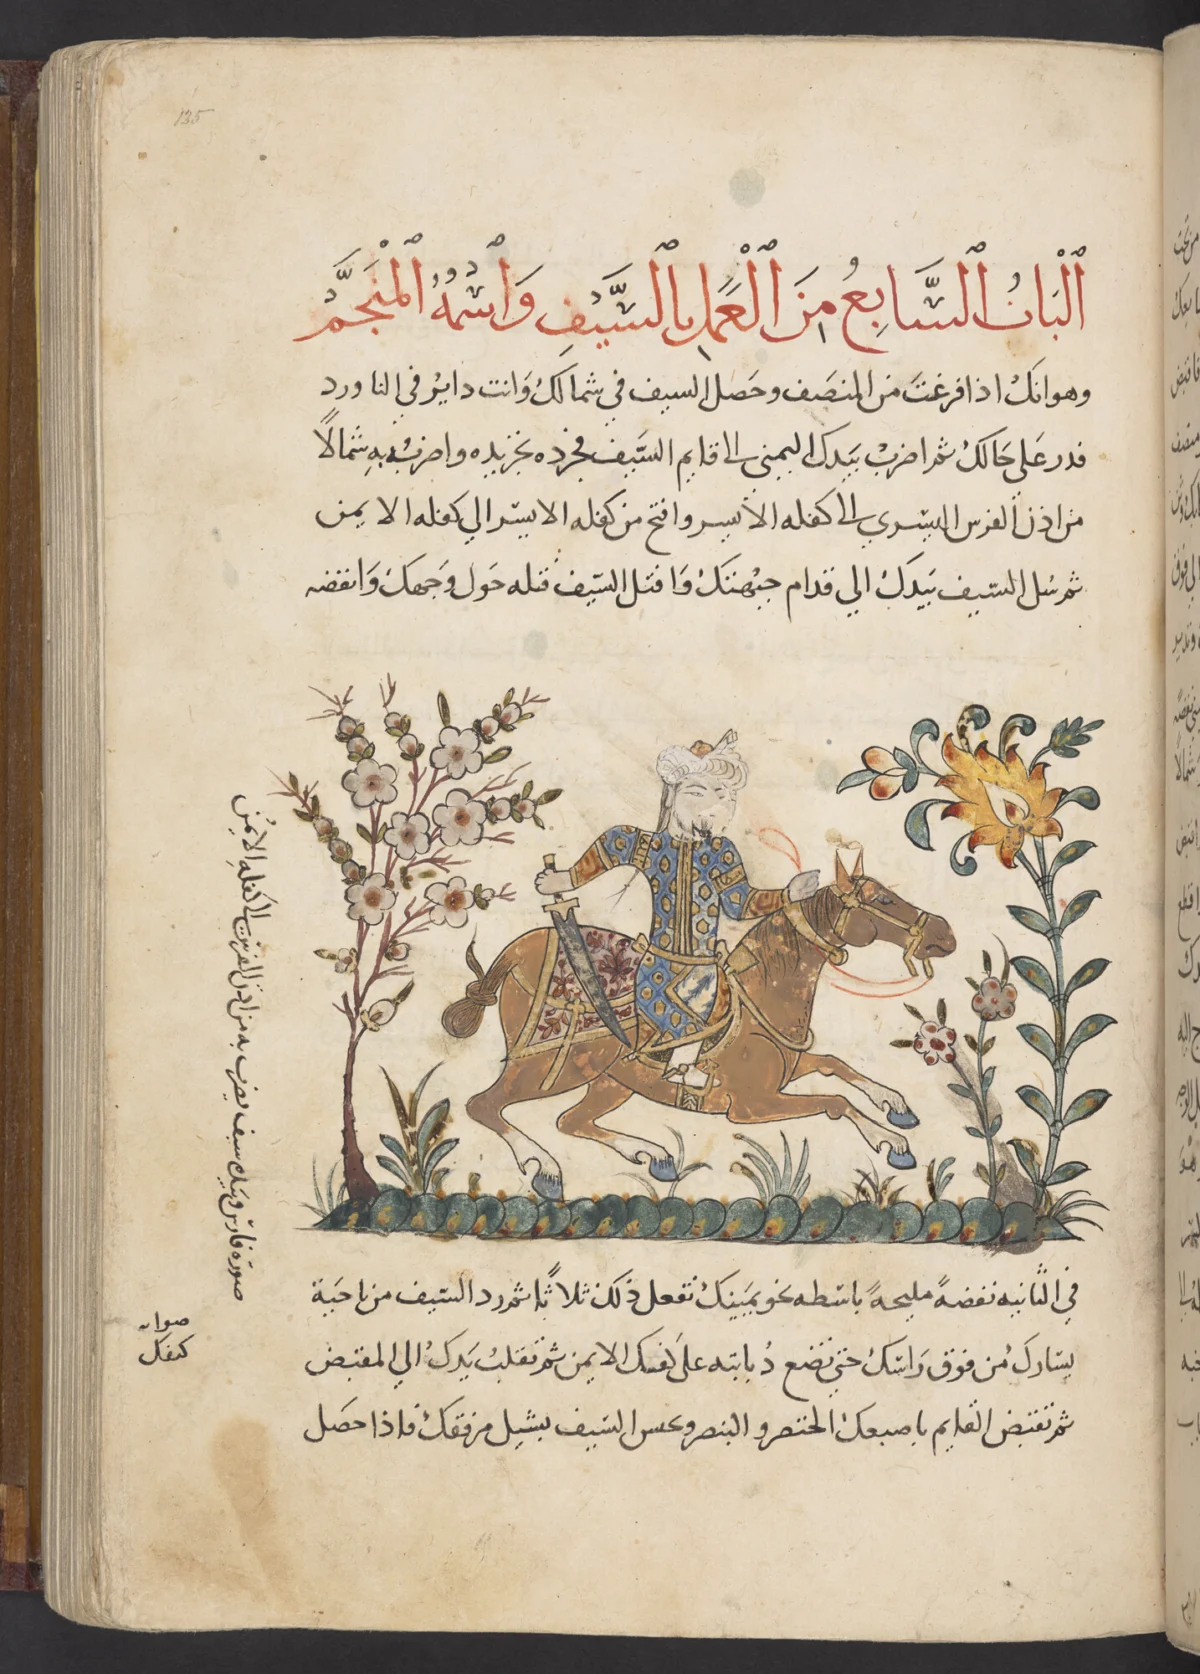 135
اَلْبَابُ السَّابِعُ مِنَ الْعَمَلِ بِالسَّيْفِ وَاسْمُهُ الْمُنَجَّمُ
وهو انك اذا فرغت من المنصف وحصل السيف في شمالك وانت داير في الناورد
فدر على حالك ثم اضرب بيدك اليمنى الى قايم السيف فجرده تجريده واضرب به شمالًا
من اذن الفرس اليسري الى كفله الأيسر وافتح من كفله الايسر الي كفله الايمن
ثم شل السيف بيدك الي قدام جبهتك وافتل السيف فتله حول وجهك وانفضه
صورة فارس وبيده سيف يضرب به من اذن الفرس الى كفله الايمن
في الثانيه نفضةً مليحةً باسطه نحو يمينك تفعل ذلك ثلاثًا ثم رد السيف من ناحية
يسارك من فوق راسك حتي تضع ذبابته على كتفك الايمن ثم تقلب يدك الي المقبض
صوابه
كتفك
ثم تقبض القايم باصبعك الخنصر والبنصر السيف بشيل مرفقك فاذا حصل